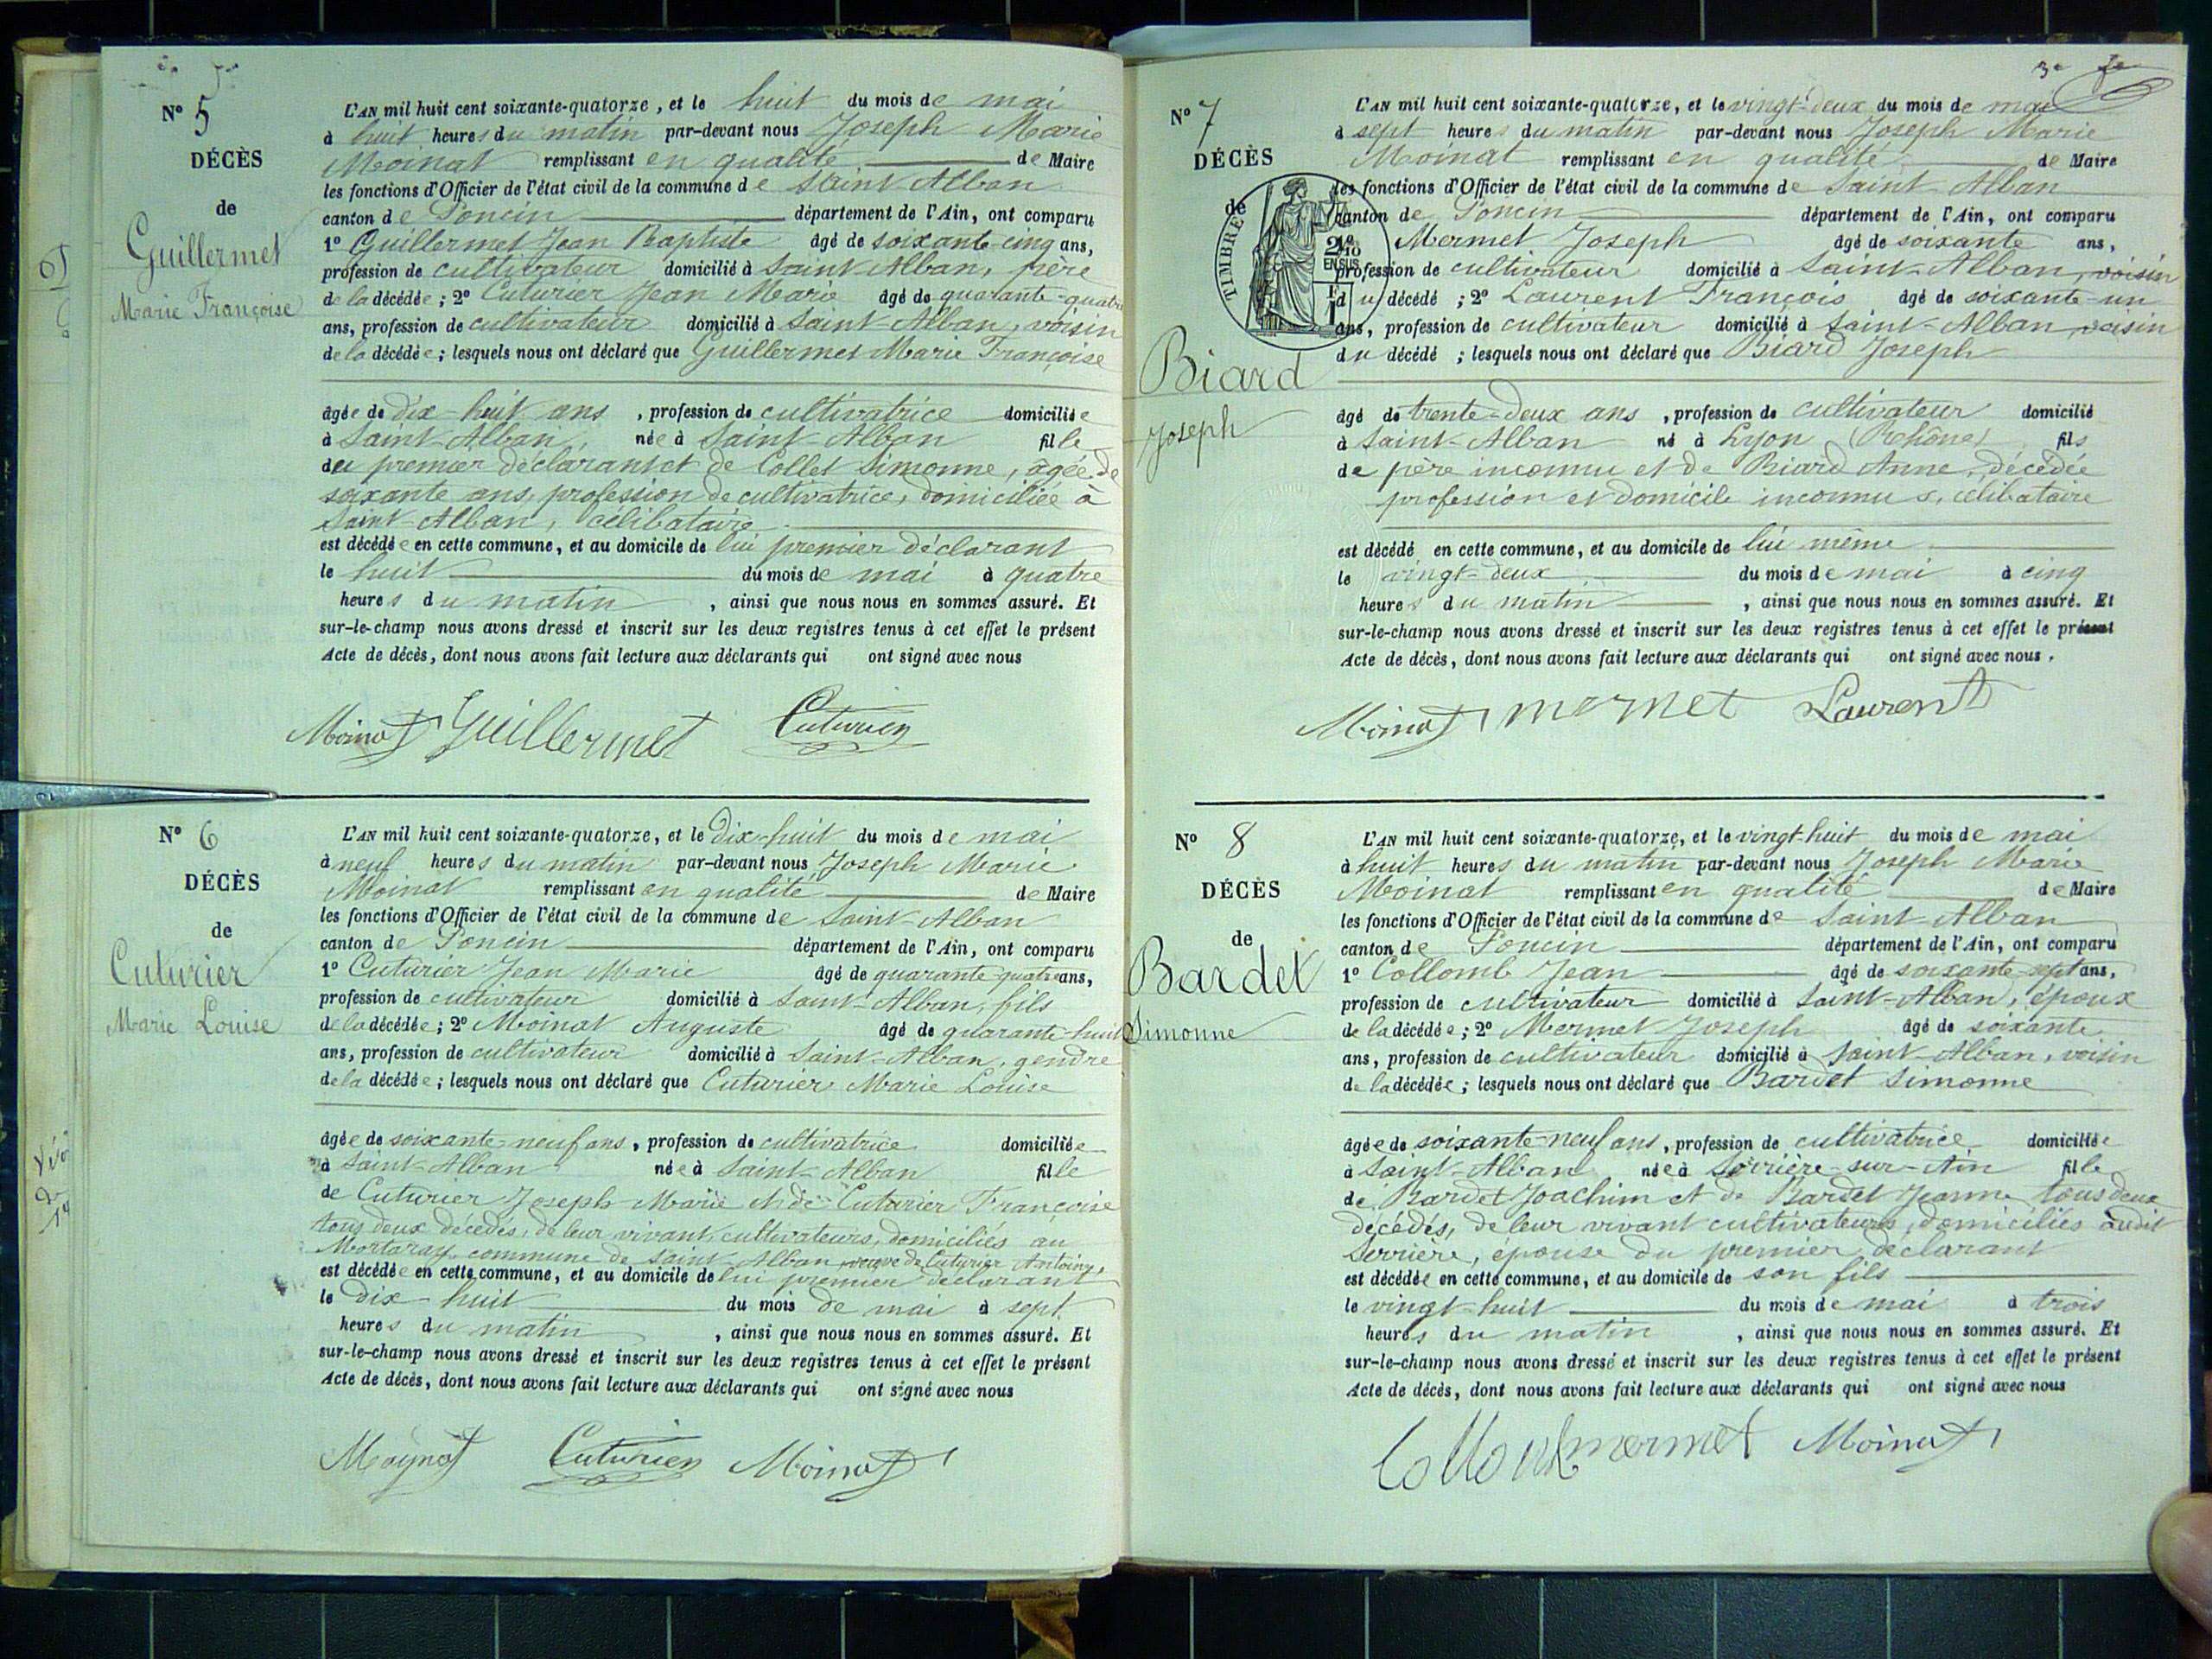 N° 5
DÉCÈS
de
Guillermet
Marie Françoise
L'AN mil huit cent soixante-quatorze, et le huit du mois de mai
à huit heures du matin par-devant nous Joseph Marie
Moinat remplissant en qualité de Maire
les fonctions d'Officier de l'état civil de la commune de Saint-Alban
canton de Poncin département de l'Ain, ont comparu
1° Guillermet Jean Baptiste âgé de soixante-cinq ans,
profession de cultivateur domicilié à Saint-Alban, père
de la décédée ; 2° Cuturier Jean Marie âgé de quarante-quatre
ans, profession de cultivateur domicilié à Saint-Alban, voisin
de la décédée ; lesquels nous ont déclaré que Guillermet Marie Françoise
âgée de dix-huit ans, profession de cultivatrice domiciliée
à Saint-Alban, née à Saint-Alban fille
du premier déclarant et de Collet Simonne, âgée de
soixante ans, profession de cultivatrice, domiciliée à
Saint-Alban, célibataire
est décédée en cette commune, et au domicile de lui premier déclarant
le huit du mois de mai à quatre
heures du matin, ainsi que nous nous en sommes assuré. Et
sur-le-champ nous avons dressé et inscrit sur les deux registres tenus à cet effet le présent
Acte de décès, dont nous avons fait lecture aux déclarants qui ont signé avec nous
Moinat Guillermet Cuturier
N° 6
DÉCÈS
de
Cuturier
Marie Louise
L'AN mil huit cent soixante-quatorze, et le dix-huit du mois de mai
à neuf heures du matin par-devant nous Joseph Marie
Moinat remplissant en qualité de Maire
les fonctions d'Officier de l'état civil de la commune de Saint-Alban
canton de Poncin département de l'Ain, ont comparu
1° Cuturier Jean Marie âgé de quarante-quatre ans,
profession de cultivateur domicilié à Saint-Alban, fils
de la décédée ; 2° Moinat Auguste âgé de quarante-huit
ans, profession de cultivateur domicilié à Saint-Alban, gendre
de la décédée ; lesquels nous ont déclaré que Cuturier Marie Louise
âgée de soixante-neuf ans, profession de cultivatrice domiciliée
à Saint-Alban née à Saint-Alban fille
de Cuturier Joseph Marie et de Cuturier Françoise
tous deux décédés, de leur vivant cultivateurs, domiciliés au
Mortaray commune de Saint-Alban, veuve de Cuturier Antoine,
est décédée en cette commune, et au domicile de lui premier déclarant
le dix-huit du mois de mai à sept
heures du matin, ainsi que nous nous en sommes assuré. Et
sur-le-champ nous avons dressé et inscrit sur les deux registres tenus à cet effet le présent
Acte de décès, dont nous avons fait lecture aux déclarants qui ont signé avec nous
Moynat Cuturier Moinat
N° 7
DÉCÈS
de
TIMBRE
2/10
EN SUS
Biard
Joseph
L'AN mil huit cent soixante-quatorze, et le vingt-deux du mois de mai
à sept heures du matin par-devant nous Joseph Marie
Moinat remplissant en qualité de Maire
les fonctions d'Officier de l'état civil de la commune de Saint-Alban
canton de Poncin département de l'Ain, ont comparu
Mermet Joseph âgé de soixante ans,
profession de cultivateur domicilié à Saint-Alban, voisin
du décédé ; 2° Laurent François âgé de soixante-un
ans, profession de cultivateur domicilié à Saint-Alban, voisin
du décédé ; lesquels nous ont déclaré que Biard Joseph
âgé de trente-deux ans, profession de cultivateur domicilié
à Saint-Alban né à Lyon (Rhône) fils
de père inconnu et de Biard Anne, décédée
profession et domicile inconnus, célibataire
est décédé en cette commune, et au domicile de lui même
le vingt-deux du mois de mai à cinq
heures du matin, ainsi que nous nous en sommes assuré. Et
sur-le-champ nous avons dressé et inscrit sur les deux registres tenus à cet effet le présent
Acte de décès, dont nous avons fait lecture aux déclarants qui ont signé avec nous.
Moinat mermet Laurent
N° 8
DÉCÈS
de
Bardet
Simonne
L'AN mil huit cent soixante-quatorze, et le vingt-huit du mois de mai
à huit heures du matin par-devant nous Joseph Marie
Moinat remplissant en qualité de Maire
les fonctions d'Officier de l'état civil de la commune de Saint-Alban
canton de Poncin département de l'Ain, ont comparu
1° Collomb Jean âgé de soixante-sept ans,
profession de cultivateur domicilié à Saint-Alban, époux
de la décédée ; 2° Mermet Joseph âgé de soixante
ans, profession de cultivateur domicilié à Saint-Alban, voisin
de la décédée ; lesquels nous ont déclaré que Bardet Simonne
âgée de soixante-neuf ans, profession de cultivatrice domiciliée
à Saint-Alban née à Serrière-sur-Ain fille
de Bardet Joachim et de Bardet Jeanne tous deux
décédés, de leur vivant cultivateurs, domiciliés audit
Serrière, épouse du premier déclarant
est décédée en cette commune, et au domicile de son fils
le vingt-huit du mois de mai à trois
heures du matin, ainsi que nous nous en sommes assuré. Et
sur-le-champ nous avons dressé et inscrit sur les deux registres tenus à cet effet le présent
Acte de décès, dont nous avons fait lecture aux déclarants qui ont signé avec nous
Collomb mermet Moinat